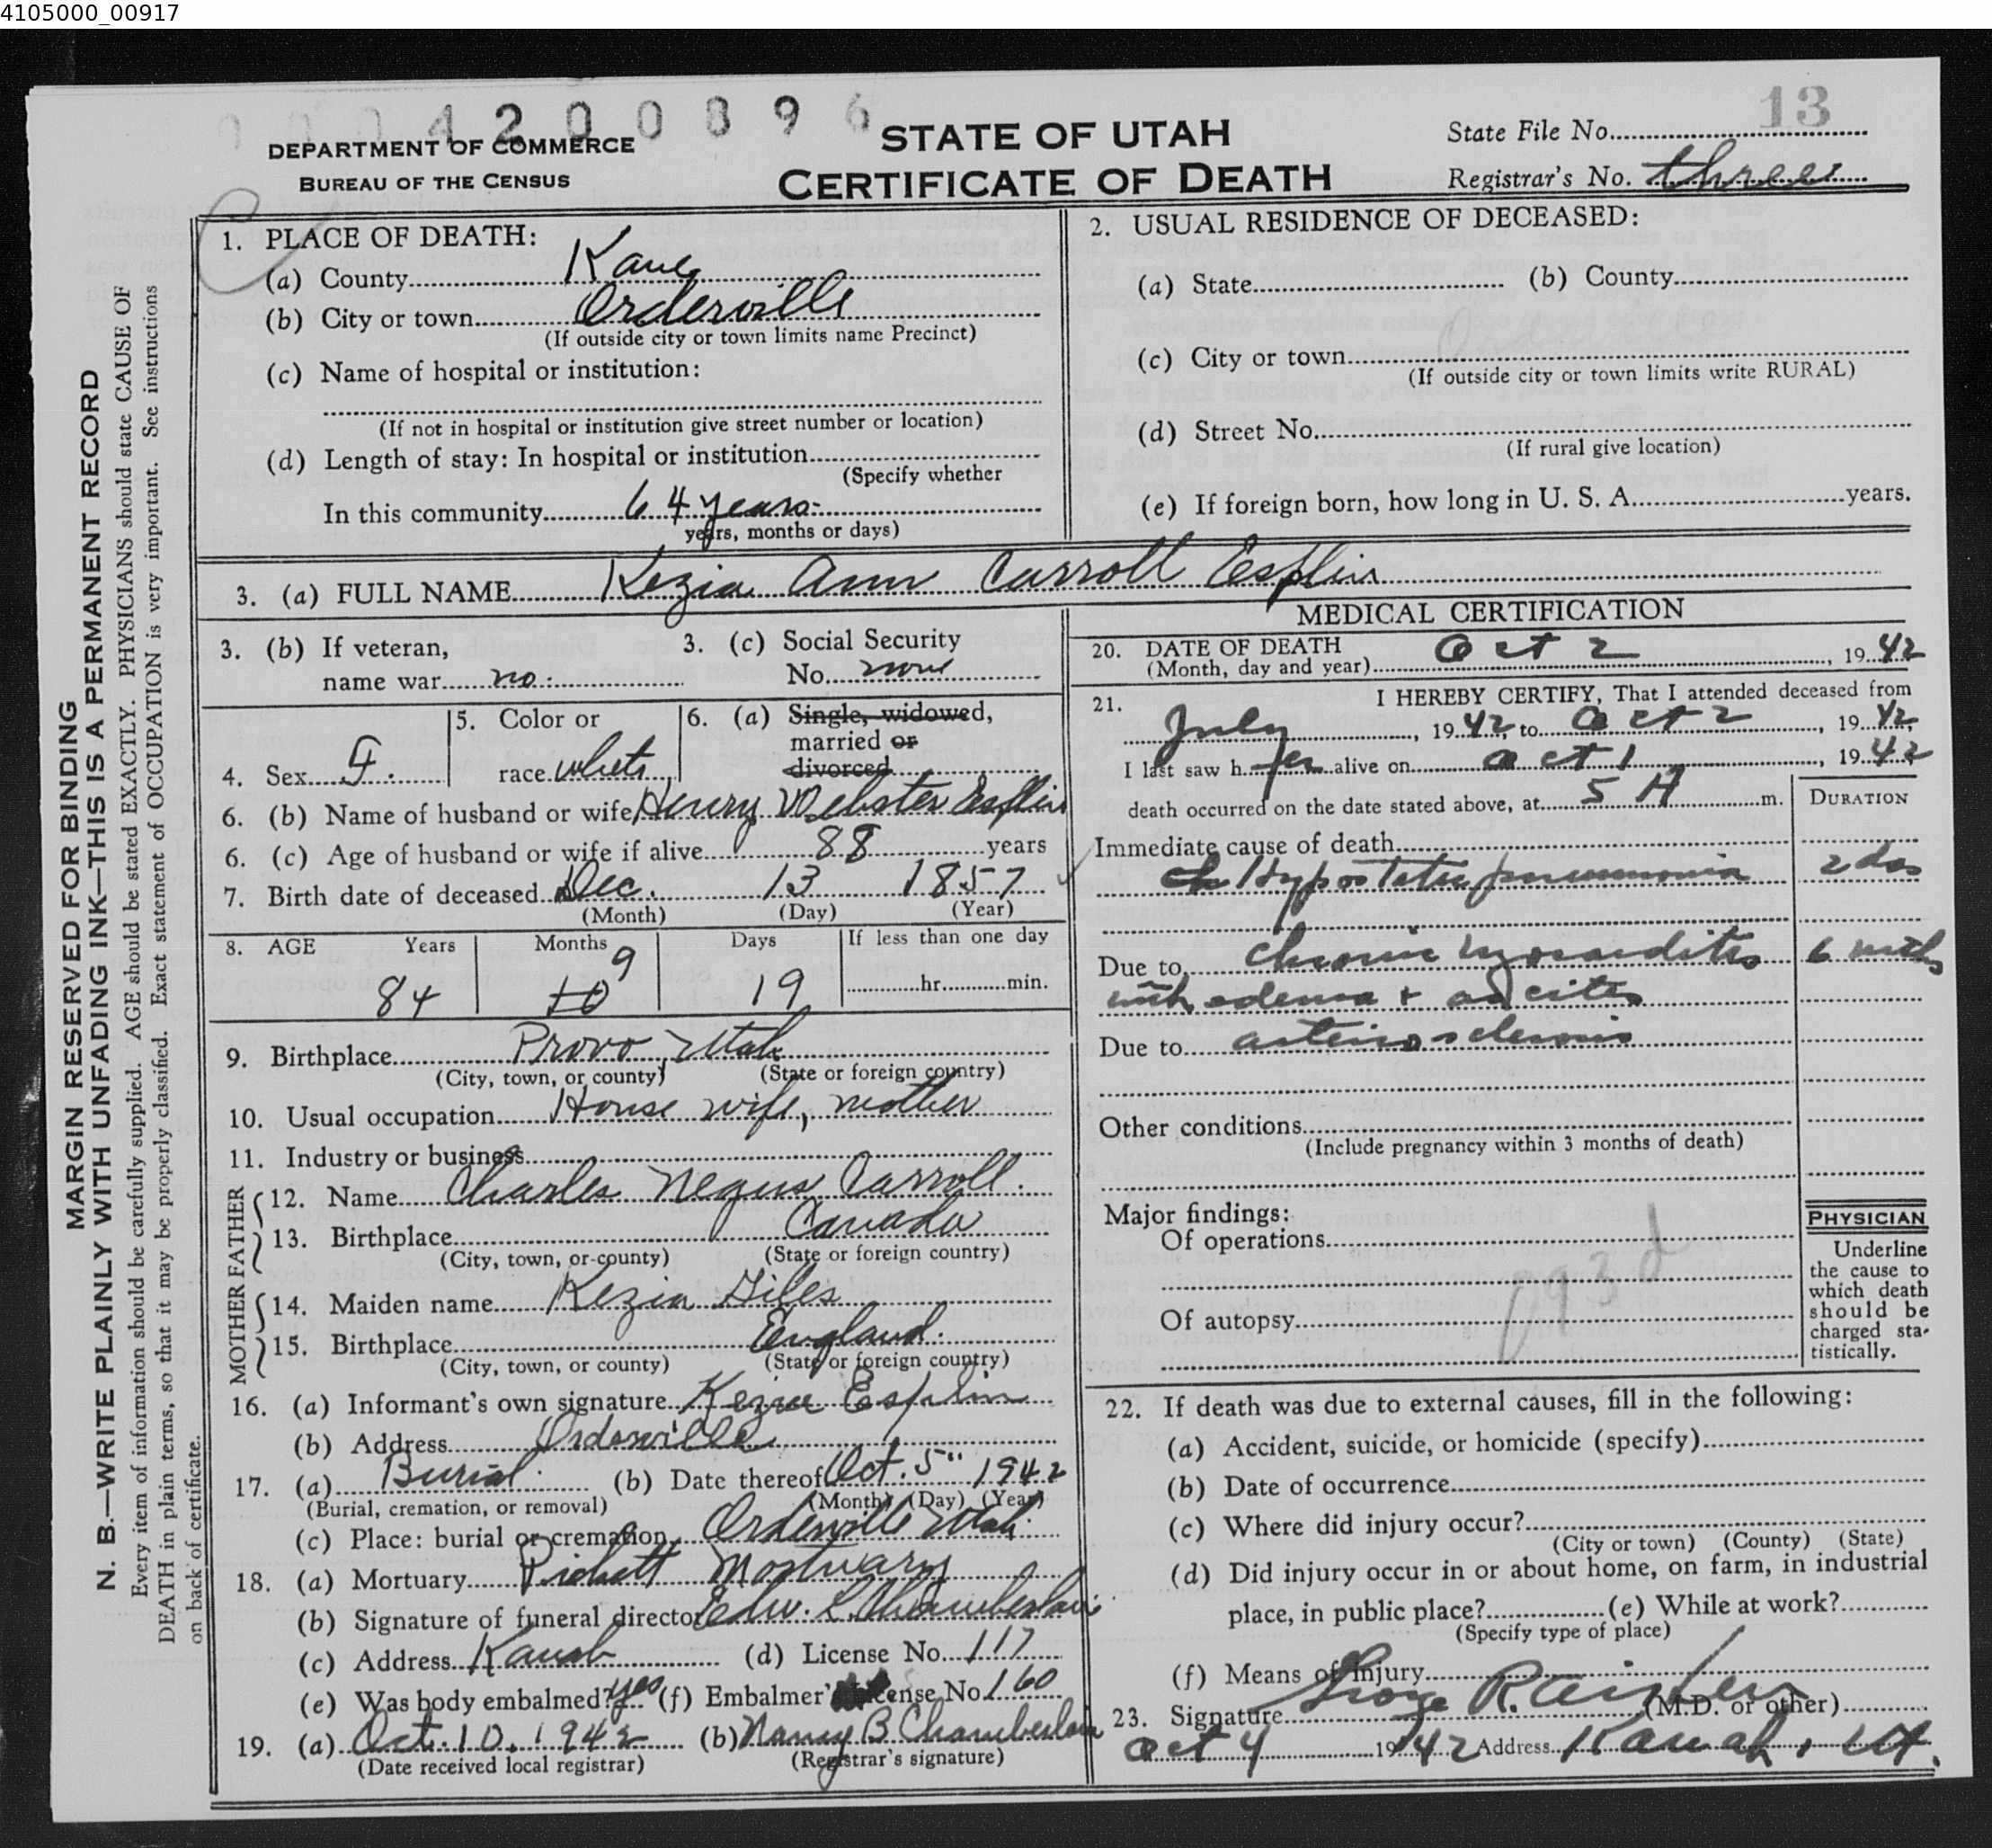 4105000_00917
0004200896
13
DEPARTMENT OF COMMERCE
BUREAU OF THE CENSUS
STATE OF UTAH
CERTIFICATE OF DEATH
State File No.
Registrar's No. three
MARGIN RESERVED FOR BINDING
N. B.—WRITE PLAINLY WITH UNFADING INK—THIS IS A PERMANENT RECORD
Every item of information should be carefully supplied. AGE should be stated EXACTLY. PHYSICIANS should state CAUSE OF
DEATH in plain terms, so that it may be properly classified. Exact statement of OCCUPATION is very important. See instructions
on back of certificate.
1. PLACE OF DEATH:
(a) County Kane
(b) City or town Orderville
(If outside city or town limits name Precinct)
(c) Name of hospital or institution:
(If not in hospital or institution give street number or location)
(d) Length of stay: In hospital or institution
(Specify whether
In this community 64 years
years, months or days)
2. USUAL RESIDENCE OF DECEASED:
(a) State (b) County
(c) City or town Orderville
(If outside city or town limits write RURAL)
(d) Street No.
(If rural give location)
(e) If foreign born, how long in U. S. A. years.
3. (a) FULL NAME Kezia Ann Carroll Esplin
3. (b) If veteran,
name war no.
3. (c) Social Security
No. none
4. Sex F.
5. Color or
race white
6. (a) Single, widowed,
married or
divorced
6. (b) Name of husband or wife Henry Webster Esplin
6. (c) Age of husband or wife if alive 88 years
7. Birth date of deceased Dec. 13 1857
(Month) (Day) (Year)
8. AGE Years Months Days If less than one day
9
84 10 19 hr. min.
9. Birthplace Provo Utah
(City, town, or county) (State or foreign country)
10. Usual occupation House wife, mother
11. Industry or business
FATHER
12. Name Charles Negus Carroll.
13. Birthplace Canada
(City, town, or county) (State or foreign country)
MOTHER
14. Maiden name Kezia Giles
15. Birthplace England.
(City, town, or county) (State or foreign country)
16. (a) Informant's own signature Kezia Esplin
(b) Address Orderville
17. (a) Burial. (b) Date thereof Oct. 5" 1942
(Burial, cremation, or removal) (Month) (Day) (Year)
(c) Place: burial or cremation Orderville Utah
18. (a) Mortuary Pickett Mortuary
(b) Signature of funeral director Edw. C. Chamberlain
(c) Address Kanab (d) License No. 117
(e) Was body embalmed? yes (f) Embalmer's License No. 160
19. (a) Oct. 10, 1942 (b) Nancy B Chamberlain
(Date received local registrar) (Registrar's signature)
MEDICAL CERTIFICATION
20. DATE OF DEATH
(Month, day and year) Oct 2, 1942
21. I HEREBY CERTIFY, That I attended deceased from
July, 1942 to Oct 2, 1942
I last saw her alive on Oct 1, 1942
death occurred on the date stated above, at 5 A m.
DURATION
Immediate cause of death
Hypostatic pneumonia 2 das
Due to Chronic Myocarditis 6 mths
with edema + ascites
Due to arteriosclerosis
Other conditions
(Include pregnancy within 3 months of death)
Major findings:
Of operations
Of autopsy
093d
PHYSICIAN
Underline
the cause to
which death
should be
charged sta-
tistically.
22. If death was due to external causes, fill in the following:
(a) Accident, suicide, or homicide (specify)
(b) Date of occurrence
(c) Where did injury occur?
(City or town) (County) (State)
(d) Did injury occur in or about home, on farm, in industrial
place, in public place? (e) While at work?
(Specify type of place)
(f) Means of injury
23. Signature George R. Aiken (M.D. or other)
Oct 4 1942 Address Kanab, Ut.